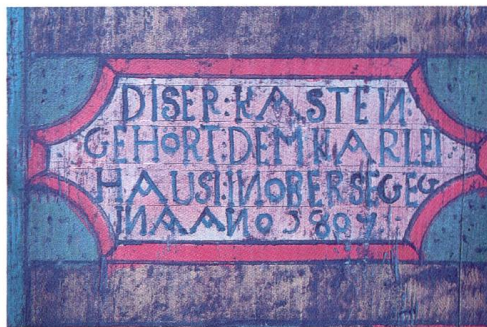 DISER:KASTEN:
GEHÖRT:DEM KARLEI
HAUSI:INOBERSEGEG
INAANO 1807